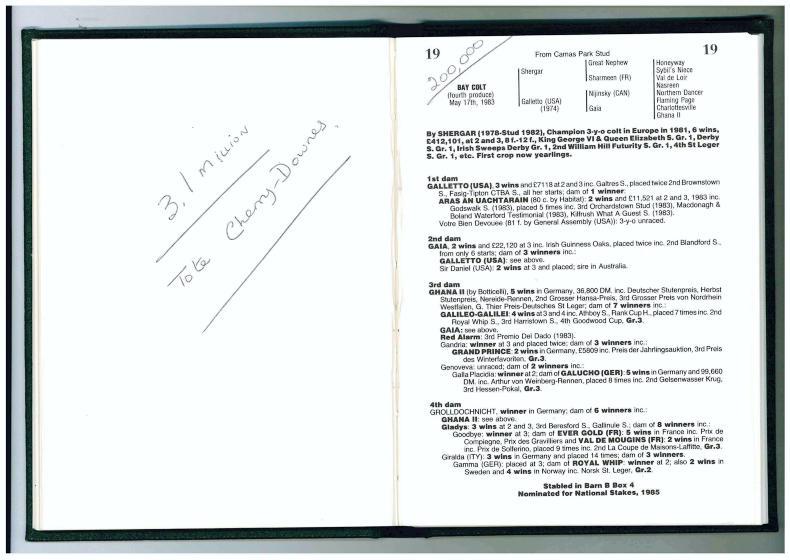 3.1 million
Tote Cherry-Downes.
19
From Camas Park Stud
19
200,000
BAY COLT
(fourth produce)
May 17th, 1983
Shergar
Galletto (USA)
(1974)
Great Nephew
Sharmeen (FR)
Nijinsky (CAN)
Gaia
Honeyway
Sybil's Niece
Val de Loir
Nasreen
Northern Dancer
Flaming Page
Charlottesville
Ghana II
By SHERGAR (1978-Stud 1982), Champion 3-y-o colt in Europe in 1981, 6 wins,
£412,101, at 2 and 3, 8 f.-12 f., King George VI & Queen Elizabeth S. Gr. 1, Derby
S. Gr. 1, Irish Sweeps Derby Gr. 1, 2nd William Hill Futurity S. Gr. 1, 4th St Leger
S. Gr. 1, etc. First crop now yearlings.
1st dam
GALLETTO (USA), 3 wins and £7118 at 2 and 3 inc. Galtres S., placed twice 2nd Brownstown
S., Fasig-Tipton CTBA S., all her starts; dam of 1 winner:
ARAS AN UACHTARAIN (80 c. by Habitat): 2 wins and £11,521 at 2 and 3, 1983 inc.
Godswalk S. (1983), placed 5 times inc. 3rd Orchardstown Stud (1983), Macdonagh &
Boland Waterford Testimonial (1983), Killfrush What A Guest S. (1983).
Votre Bien Devouee (81 f. by General Assembly (USA)): 3-y-o unraced.
2nd dam
GAIA, 2 wins and £22,120 at 3 inc. Irish Guinness Oaks, placed twice inc. 2nd Blandford S.,
from only 6 starts; dam of 3 winners inc.:
GALLETTO (USA): see above.
Sir Daniel (USA): 2 wins at 3 and placed; sire in Australia.
3rd dam
GHANA II (by Botticelli), 5 wins in Germany, 36,800 DM. inc. Deutscher Stutenpreis, Herbst
Stutenpreis, Nereide-Rennen, 2nd Grosser Hansa-Preis, 3rd Grosser Preis von Nordrhein
Westfalen, G. Thier Preis-Deutsches St Leger; dam of 7 winners inc.:
GALILEO-GALILEI: 4 wins at 3 and 4 inc. Athboy S., Rank Cup H., placed 7 times inc. 2nd
Royal Whip S., 3rd Harristown S., 4th Goodwood Cup, Gr.3.
GAIA: see above.
Red Alarm: 3rd Premio Dei Dado (1983).
Gandria: winner at 3 and placed twice; dam of 3 winners inc.:
GRAND PRINCE: 2 wins in Germany, £5809 inc. Preis der Jahrlingsauktion, 3rd Preis
des Winterfavoriten, Gr.3.
Genoveva: unraced; dam of 2 winners inc.:
Galla Placidia: winner at 2; dam of GALUCHO (GER): 5 wins in Germany and 99,660
DM. inc. Arthur von Weinberg-Rennen, placed 8 times inc. 2nd Gelsenwasser Krug,
3rd Hessen-Pokal, Gr.3.
4th dam
GROLLDOCHNICHT, winner in Germany; dam of 6 winners inc.:
GHANA II: see above.
Gladys: 3 wins at 2 and 3, 3rd Beresford S., Gallinule S.; dam of 8 winners inc.:
Goodbye: winner at 3; dam of EVER GOLD (FR): 5 wins in France inc. Prix de
Compiegne, Prix des Gravilliers and VAL DE MOUGINS (FR): 2 wins in France
inc. Prix de Solferino, placed 9 times inc. 2nd La Coupe de Maisons-Laffitte, Gr.3.
Giralda (ITY): 3 wins in Germany and placed 14 times; dam of 3 winners.
Gamma (GER): placed at 3; dam of ROYAL WHIP: winner at 2; also 2 wins in
Sweden and 4 wins in Norway inc. Norsk St. Leger, Gr.2.
Stabled in Barn B Box 4
Nominated for National Stakes, 1985